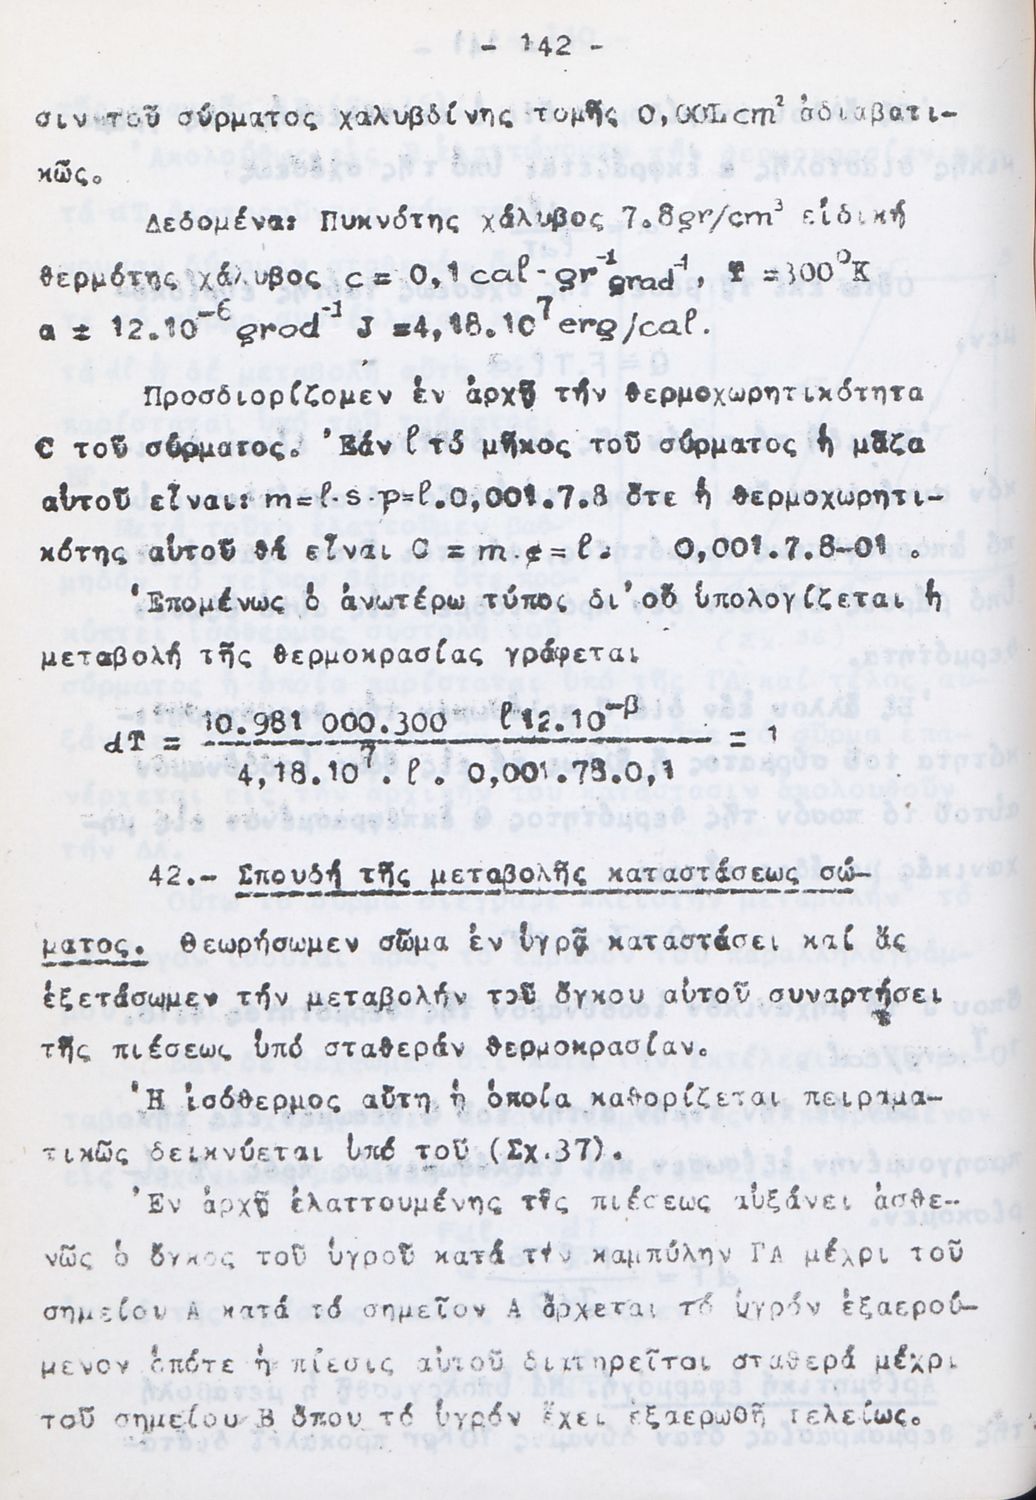 - 142 -
σιν τοῦ σύρματος χαλυβδίνης τομῆς 0,001 cm² ἀδιαβατι-
κῶς.
Δεδομένα: Πυκνότης χάλυβος 7.8gr/cm³ εἰδική
θερμότης χάλυβος c = 0,1 cal·gr⁻¹ grad⁻¹, T =300⁰K
α = 12.10⁻⁶ grad⁻¹ J =4,18.10⁷ erg/cal.
Προσδιορίζομεν ἐν ἀρχῇ τήν θερμοχωρητικότητα
C τοῦ σύρματος. Ἐάν ℓ τό μῆκος τοῦ σύρματος ἡ μᾶζα
αὐτοῦ εἶναι: m=ℓ·s·p=ℓ.0,001.7.8 ὅτε ἡ θερμοχωρητι-
κότης αὐτοῦ θά εἶναι C = m.c = ℓ. 0,001 7.8-01 .
Ἐπομένως ὁ ἀνωτέρω τύπος δι' οὗ ὑπολογίζεται ἡ
μεταβολή τῆς θερμοκρασίας γράφεται
10.981 000.300 ℓ12.10⁻⁸
dT = = 1
4,18.10⁷. ℓ. 0,001.78.0,1
42.- Σπουδή τῆς μεταβολῆς καταστάσεως σώ-
ματος. Θεωρήσωμεν σῶμα ἐν ὑγρᾷ καταστάσει καί ἄς
ἐξετάσωμεν τήν μεταβολήν τοῦ ὄγκου αὐτοῦ συναρτήσει
τῆς πιέσεως ὑπό σταθεράν θερμοκρασίαν.
Ἡ ἰσόθερμος αὕτη ἡ ὁποία καθορίζεται πειραμα-
τικῶς δεικνύεται ὑπό τοῦ (Σχ.37).
Ἐν ἀρχῇ ἐλαττουμένης τῆς πιέσεως αὐξάνει ἀσθε-
νῶς ὁ ὄγκος τοῦ ὑγροῦ κατά τήν καμπύλην ΓΑ μέχρι τοῦ
σημείου Α κατά τό σημεῖον Α ἄρχεται τό ὑγρόν ἐξαερού-
μενον ὁπότε ἡ πίεσις αὐτοῦ διατηρεῖται σταθερά μέχρι
τοῦ σημείου Β ὅπου τό ὑγρόν ἔχει ἐξαερωθῆ τελείως.